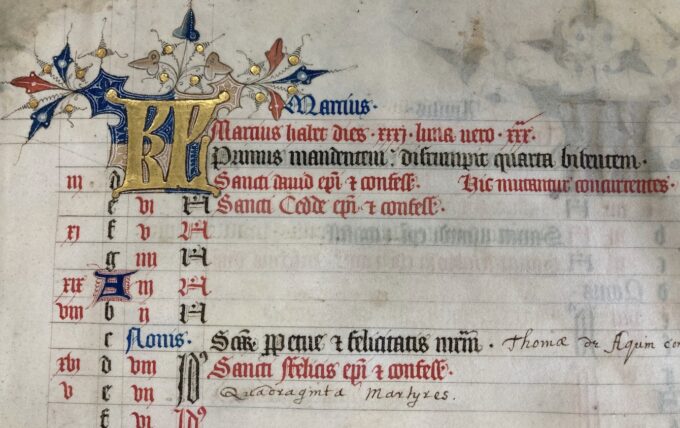 KL Marcius.
Marcius habet dies · xxxj · luna vero · xxx ·
Primus mandentem : disrumpit quarta bibentem ·
iij d Sancti dauid epi & confess. Hic mutantur concurrentes ·
e vi N Sancti Cedde epi & confess.
xj f v N
g iiij N
xix A iij N
viij b ii N
c Nonis. Scar ppetue & felicitatis mrm · Thomæ de Aquin con
xvj d viij Id9 Sancti Felicis epi & confess.
v e vij Id9 Quadraginta Martyres.
f vi Id9